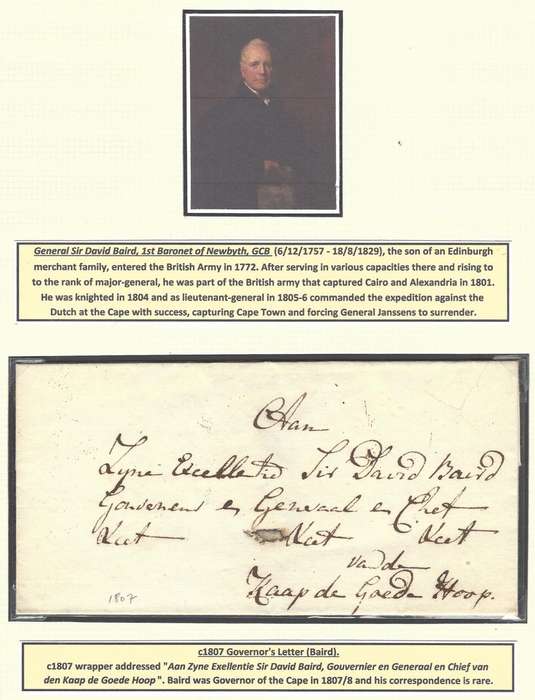 General Sir David Baird, 1st Baronet of Newbyth, GCB (6/12/1757 - 18/8/1829), the son of an Edinburgh
merchant family, entered the British Army in 1772. After serving in various capacities there and rising to
to the rank of major-general, he was part of the British army that captured Cairo and Alexandria in 1801.
He was knighted in 1804 and as lieutenant-general in 1805-6 commanded the expedition against the
Dutch at the Cape with success, capturing Cape Town and forcing General Janssens to surrender.
Aan
Zyne Excellentie Sir David Baird
Gouverneur en Generaal en Chef
&cet &cet &cet
van de
Kaap de Goede Hoop.
1807
c1807 Governor's Letter (Baird).
c1807 wrapper addressed "Aan Zyne Exellentie Sir David Baird, Gouvernier en Generaal en Chief van
den Kaap de Goede Hoop". Baird was Governor of the Cape in 1807/8 and his correspondence is rare.